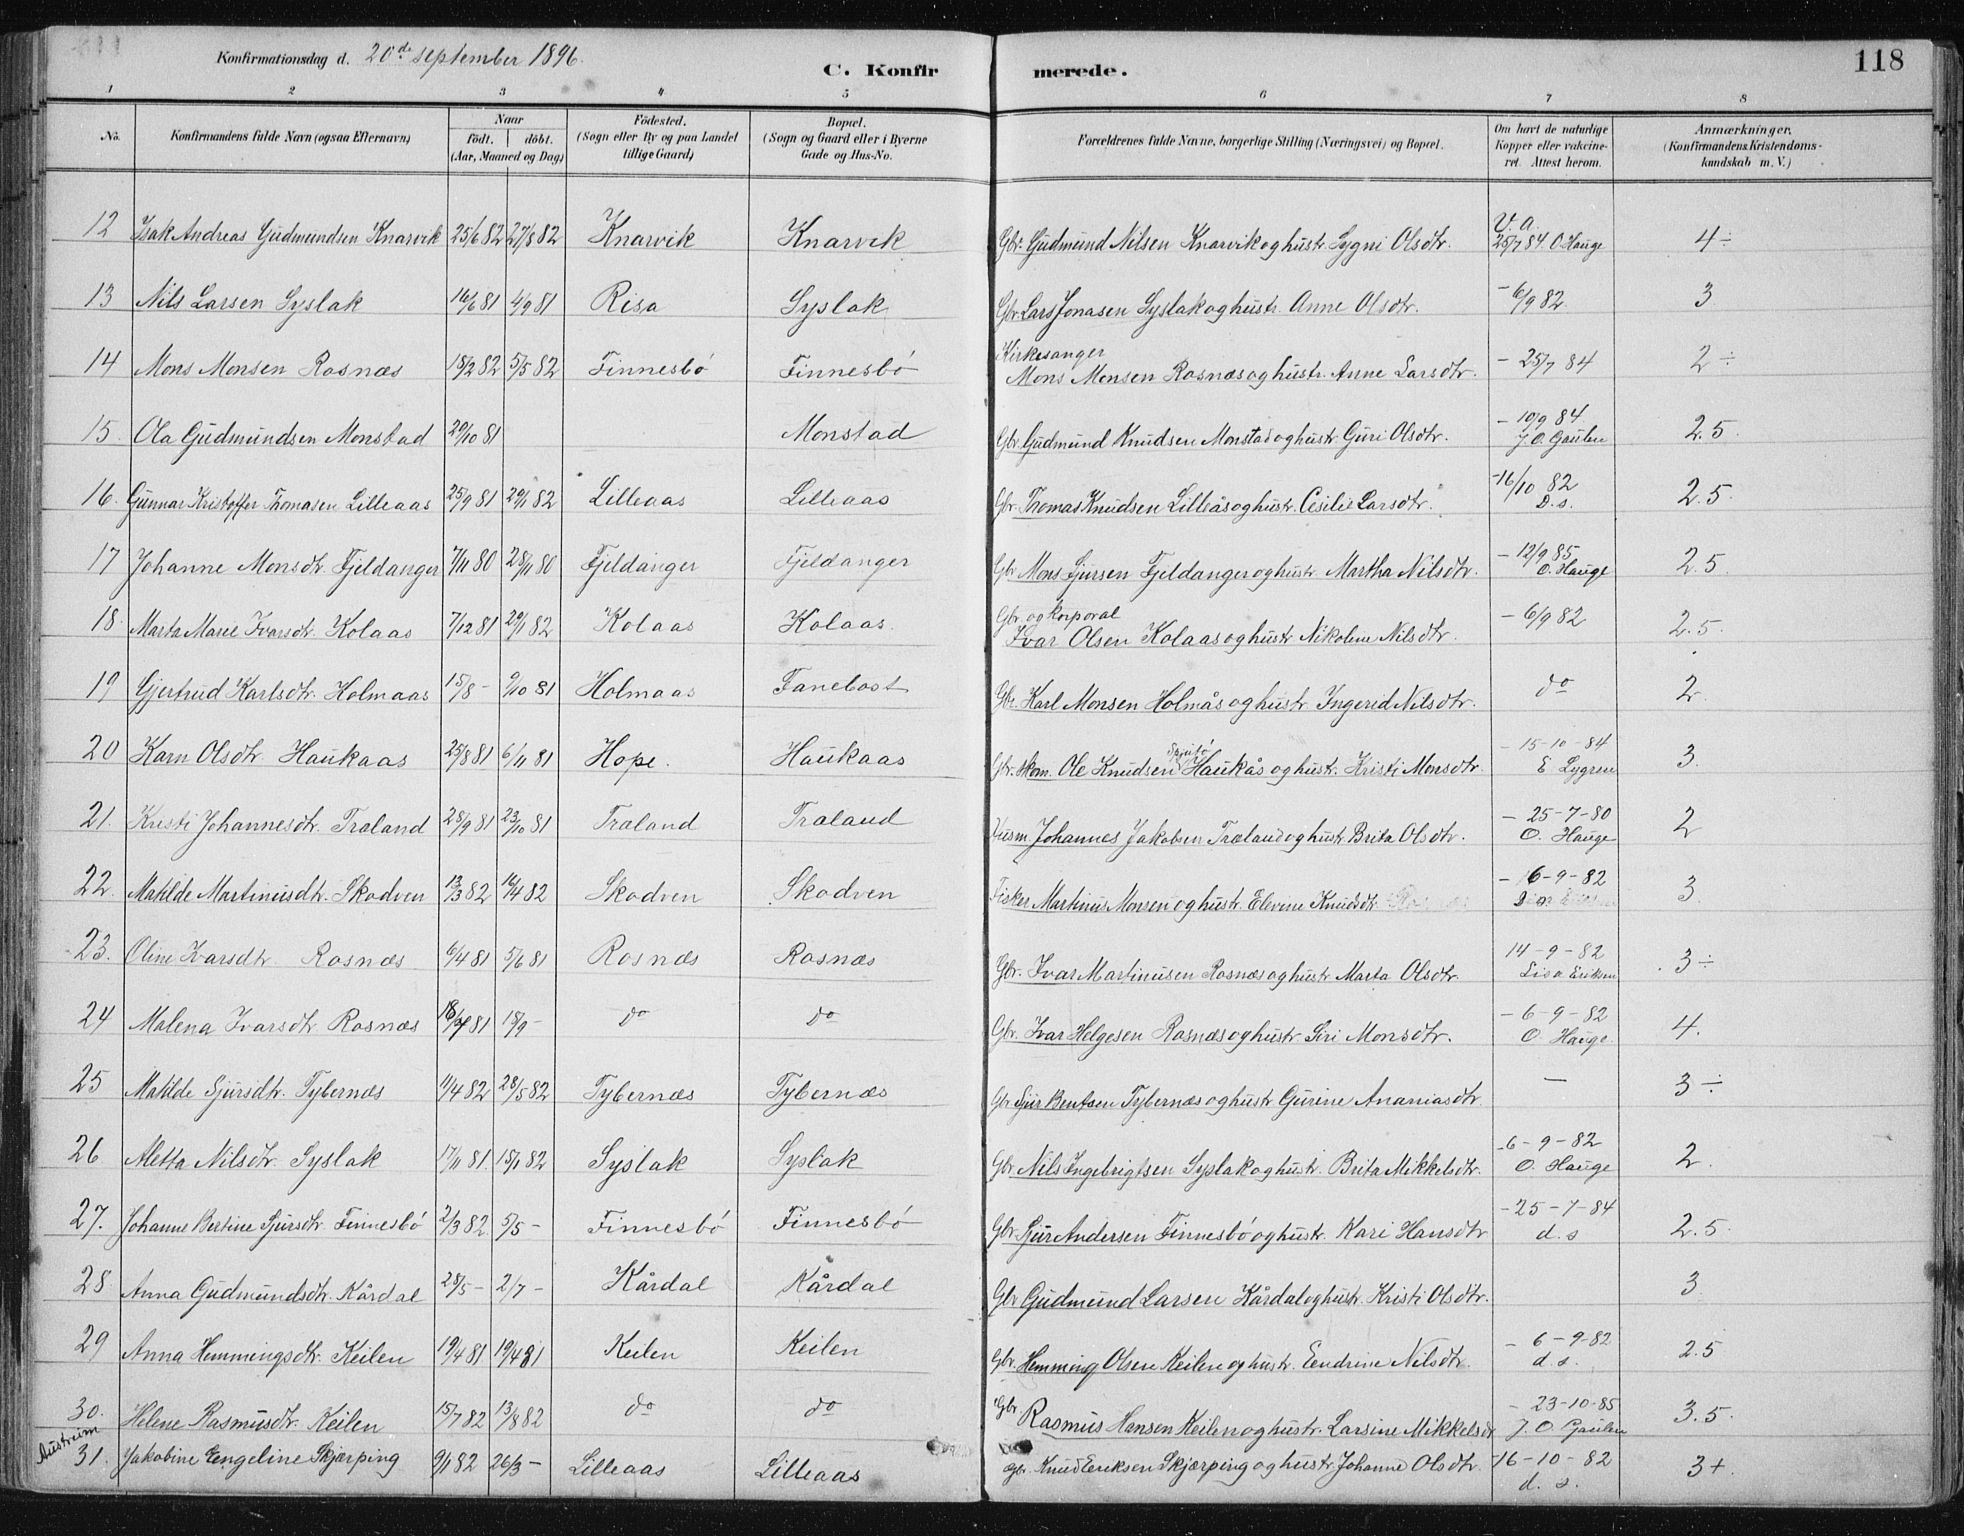 Konfirmationsdag d. 20de september 1896.
C. Konfir merede. 118
1 2 3 4 5 6 7 8
No. Konfirmandens fulde Navn (ogsaa Efternavn) Naar födt. döbt. (Aar, Maaned og Dag) Födested. (Sogn eller By og paa Landet tillige Gaard) Bopæl. (Sogn og Gaard eller i Byerne Gade og Hus-No. Forældrenes fulde Navne, borgerlige Stilling (Næringsvei) og Bopæl. Om havt de naturlige Kopper eller vakcineret. Attest herom. Anmærkninger, (Konfirmandens Kristendomskundskab m. V.)
12 Isak Andreas Gudmundsen Knarvik 25/6 82 27/8 82 Knarvik Knarvik Gbr. Gudmund Nilsen Knarvik og hustr. Sygni Olsdtr. V. a. 25/7 84. O. Hauge 4÷
13 Nils Larsen Syslak 16/6 81 4/9 81 Risa Syslak Gbr. Lars Jonasen Syslak og hustr. Anne Olsdtr. - 6/9 82. 3
14 Mons Monsen Rosnæs 18/2 82 5/5 82 Finnesbö Finnesbö Kirkesanger Mons Monsen Rosnæs og hustr. Anne Larsdtr. - 25/7 84 2÷
15. Ola Gudmundsen Monstad 29/10 81 Monstad Gbr. Gudmund Knudsen Monstad og hustr. Guri Olsdtr. - 10/9 84 J. O. Gaulen 2.5.
16. Gunnar Kristoffer Thomasen Lilleaas 25/9 81 29/1 82 Lilleaas Lilleaas Gbr. Thomas Knudsen Lilleås og hustr. Cesilie Larsdtr. -16/10 82 D. s. 2.5.
17 Johanne Monsdtr. Fjeldanger 7/11 80 28/11 80 Fjeldanger Fjeldanger Gbr. Mons Sjursen Fjeldanger og hustr. Martha Nilsdtr. - 12/9 85 O. Hauge 2.5.
18. Marta Marie Ivarsdtr. Kolaas 7/12 81 29/1 82 Kolaas Kolaas. Gbr. og Korporal Ivar Olsen Kolaas og hustr. Nikoline Nilsdtr. - 6/9 82 2.5.
19 Gjertrud Karlsdtr. Holmaas 15/8 - 9/10 81 Holmaas Tanebost Gbr. Karl Monsen Holmås og hustr. Ingerid Nilsdtr. do 2.
20 Karn Olsdtr. Haukaas 25/8 81 6/11 81 Hope. Haukaas Gbr. skom. Ole Knudsen Haukås og hustr. Kristi Monsdtr. - 15-10-84 E Lygren 3.
21. Kristi Johannesdtr. Træland 28/9 81 23/10 81 Træland Træland Husm. Johannes Jakobsen Træland og hustr. Brita Olsdtr. - 25-7-80 O. Hauge 2
22. Matilde Martinusdtr. Skodven 13/3 82 16/4 82 Skodven Skodven Fisker Martinus Monsen og hustr. Elevine Knudsdtr. - 6-9-82 3.
23. Oline Ivarsdtr. Rosnæs 6/4 81 5/6 81 Rosnæs Rosnæs Gbr. Ivar Martinusen Rosnæs og hustr. Marta Olsdtr. 14-9-82 Lisa Eriksen 3÷
24 Malena Ivarsdtr. Rosnæs 18/7 81 18/9 - do do Gbr. Ivar Helgesen Rosnæs og hustr. Siri Monsdtr. - 6-9-82 O. Hauge. 4.
25 Matilde Sjursdtr. Tybernæs 11/4 82 28/5 82 Tybernæs Tybernæs Gbr. Sjur Bentsen Tybernæs og hustr. Gurine Ananiasdtr. - 3÷
26 Aletta Nilsdtr. Syslak 17/11 81. 15/1 82 Syslak Syslak Gbr. Nils Ingebrigtsen Syslak og hustr. Brita Mikkelsdtr. -6-9-82 O. Hauge 2.
27. Johanne Bertine Sjursdtr. Finnesbö 2/3 82. 5/5 - Finnesbö Finnesbö Gbr. Sjur Andersen Finnesbö og hustr. Kari Hansdtr. -25-7-84 d. s 2.5.
28. Anna Gudmundsdtr. Kårdal 28/5 - 2/7 - Kårdal Kårdal Gbr. Gudmund Larsen Kårdal og hustr. Kristi Olsdtr. 3.
29 Anna Hemmingsdtr. Keilen 19/4 81 19/4 81 Keilen Keilen Gbr. Hemming Olsen Keilen og hustr. Eendrine Nilsdtr. - 6-9-82 d. s. 2.5
30. Helene Rasmusdtr. Keilen 15/7 82 13/8 82 do do Gbr. Rasmus Hansen Keilen og hustr. Larsine Mikkelsdtr - 23-10-85 J. O. Gaulen 3.5.
Austreim
31. Jakobine Engeline Skjærping 9/1 82 26/3 - Lilleaas Lilleaas Gbr. Knud Eriksen Skjærping og hustr. Johanne Olsdtr. -16-10-82 d. s. 3+.